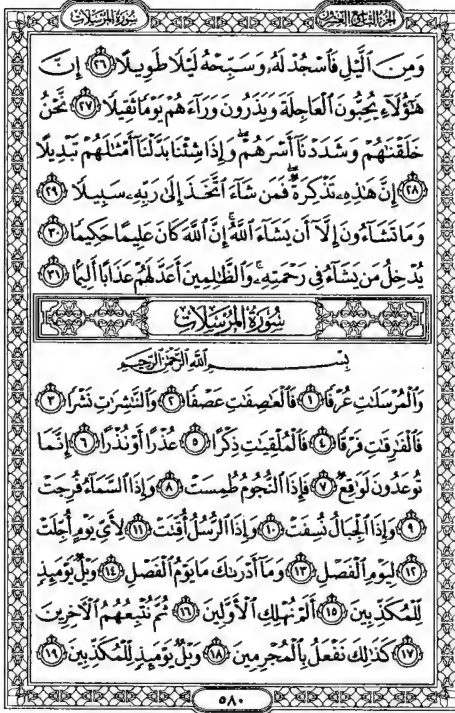 سُورَةُ المُرْسَلَات
الجزء التاسع والعشرون
وَمِنَ ٱلَّيْلِ فَٱسْجُدْ لَهُۥ وَسَبِّحْهُ لَيْلًا طَوِيلًا ٢٦ إِنَّ
هَٰٓؤُلَآءِ يُحِبُّونَ ٱلْعَاجِلَةَ وَيَذَرُونَ وَرَآءَهُمْ يَوْمًا ثَقِيلًا ٢٧ نَّحْنُ
خَلَقْنَٰهُمْ وَشَدَدْنَآ أَسْرَهُمْ ۖ وَإِذَا شِئْنَا بَدَّلْنَآ أَمْثَٰلَهُمْ تَبْدِيلًا
٢٨ إِنَّ هَٰذِهِۦ تَذْكِرَةٌ ۖ فَمَن شَآءَ ٱتَّخَذَ إِلَىٰ رَبِّهِۦ سَبِيلًا ٢٩
وَمَا تَشَآءُونَ إِلَّآ أَن يَشَآءَ ٱللَّهُ ۚ إِنَّ ٱللَّهَ كَانَ عَلِيمًا حَكِيمًا ٣٠
يُدْخِلُ مَن يَشَآءُ فِى رَحْمَتِهِۦ ۚ وَٱلظَّٰلِمِينَ أَعَدَّ لَهُمْ عَذَابًا أَلِيمًۢا ٣١
سُورَةُ المُرْسَلَات
بِسْمِ ٱللَّهِ ٱلرَّحْمَٰنِ ٱلرَّحِيمِ
وَٱلْمُرْسَلَٰتِ عُرْفًا ١ فَٱلْعَٰصِفَٰتِ عَصْفًا ٢ وَٱلنَّٰشِرَٰتِ نَشْرًا ٣
فَٱلْفَٰرِقَٰتِ فَرْقًا ٤ فَٱلْمُلْقِيَٰتِ ذِكْرًا ٥ عُذْرًا أَوْ نُذْرًا ٦ إِنَّمَا
تُوعَدُونَ لَوَٰقِعٌ ٧ فَإِذَا ٱلنُّجُومُ طُمِسَتْ ٨ وَإِذَا ٱلسَّمَآءُ فُرِجَتْ
٩ وَإِذَا ٱلْجِبَالُ نُسِفَتْ ١٠ وَإِذَا ٱلرُّسُلُ أُقِّتَتْ ١١ لِأَىِّ يَوْمٍ أُجِّلَتْ
١٢ لِيَوْمِ ٱلْفَصْلِ ١٣ وَمَآ أَدْرَىٰكَ مَا يَوْمُ ٱلْفَصْلِ ١٤ وَيْلٌ يَوْمَئِذٍ
لِّلْمُكَذِّبِينَ ١٥ أَلَمْ نُهْلِكِ ٱلْأَوَّلِينَ ١٦ ثُمَّ نُتْبِعُهُمُ ٱلْءَاخِرِينَ
١٧ كَذَٰلِكَ نَفْعَلُ بِٱلْمُجْرِمِينَ ١٨ وَيْلٌ يَوْمَئِذٍ لِّلْمُكَذِّبِينَ ١٩
٥٨٠